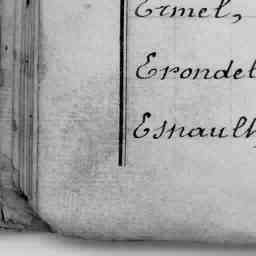 Ermel,
Erondel
Esnault,